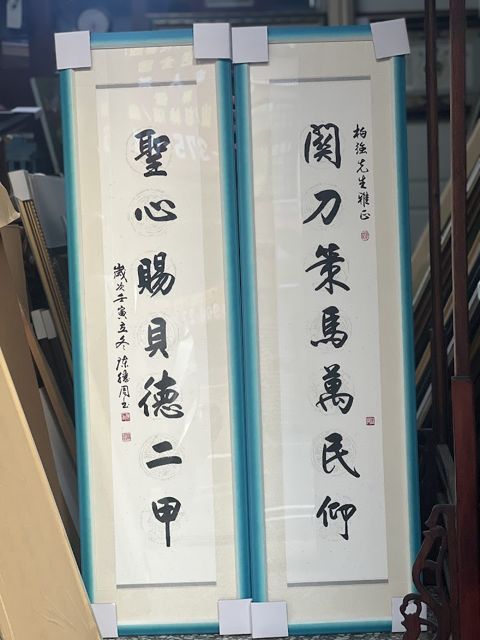 柏強先生雅正
關刀策馬萬民仰
聖心賜貝德二甲
歲次壬寅立冬陳德周書